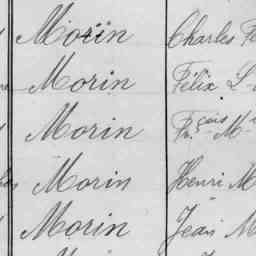 Morin Charles F
Morin Félix L
Morin Fr.çois M
Morin Henri M
Morin Jean M